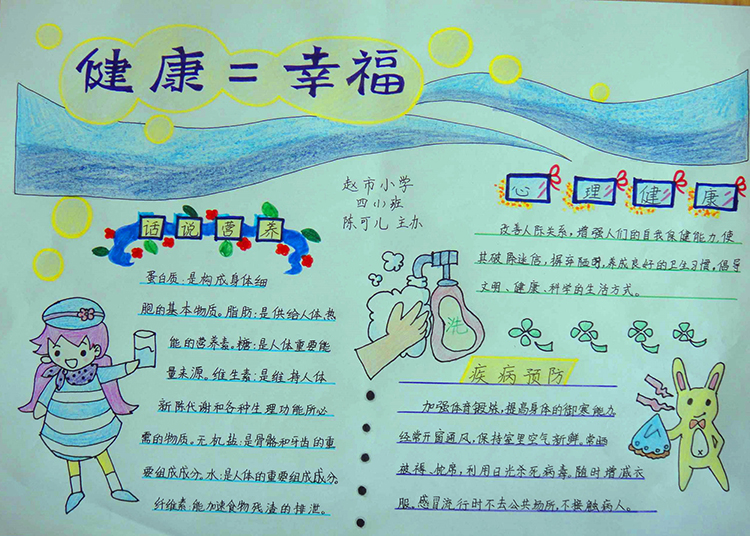 健康=幸福
赵市小学
四(1)班
陈可儿 主办
话说营养
蛋白质:是构成身体细
胞的基本物质。脂肪:是供给人体热
能的营养素。糖:是人体重要能
量来源。维生素:是维持人体
新陈代谢和各种生理功能所必
需的物质。无机盐:是骨骼和牙齿的重
要组成成分。水:是人体的重要组成成分。
纤维素:能加速食物残渣的排泄。
心理健康
改善人际关系,增强人们的自我保健能力,使
其破除迷信,摒弃陋习,养成良好的卫生习惯,倡导
文明、健康、科学的生活方式。
洗
疾病预防
加强体育锻炼,提高身体的御寒能力
经常开窗通风,保持室里空气新鲜,常晒
被褥、枕席,利用日光杀死病毒。随时增减衣
服。感冒流行时不去公共场所,不接触病人。